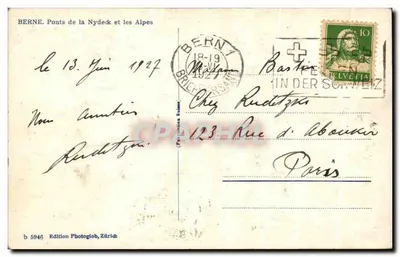 BERNE. Ponts de la Nydeck et les Alpes
BERN 1
18-19
1927
BRIEFVERSAND
10
HELVETIA
IN DER SCHWEIZ
le 13 Juin 1927
Madame Bastin
Chez Ruditzki
123 Rue d'Aboukir
Paris
b 5946 Edition Photoglob, Zürich